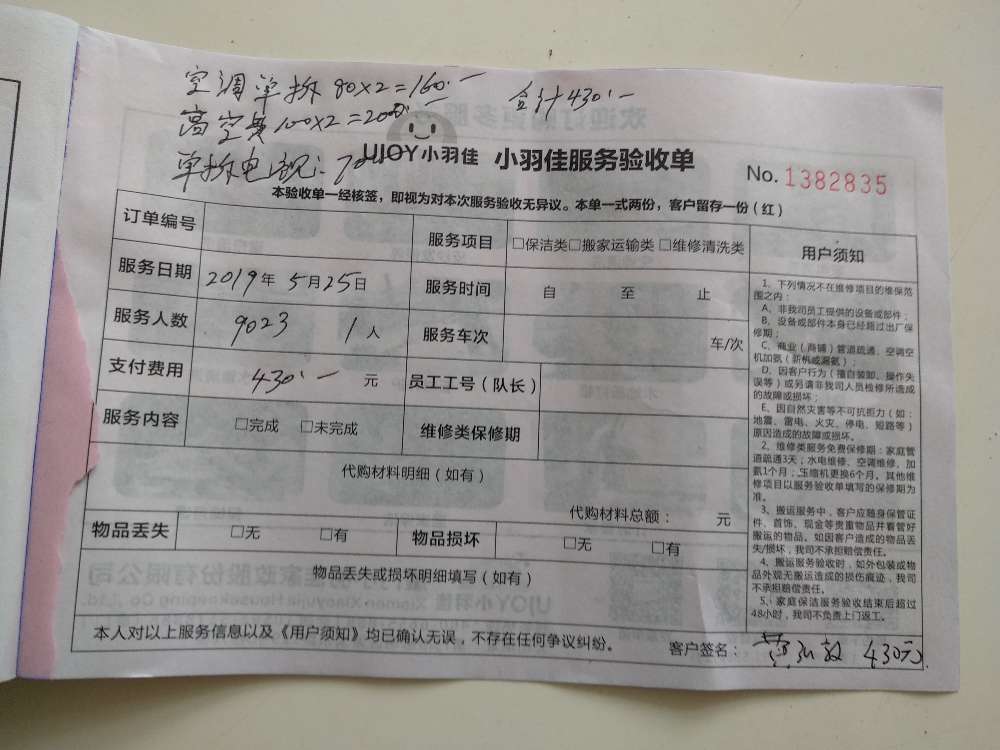 空调单拆 80×2=160.-
合计430.-
高空费100×2=200.
单拆电视:70
UJOY小羽佳 小羽佳服务验收单
No. 1382835
本验收单一经核签，即视为对本次服务验收无异议。本单一式两份，客户留存一份（红）
订单编号 服务项目 □保洁类□搬家运输类□维修清洗类
服务日期 2019年 5月25日 服务时间 自 至 止
服务人数 9023 1人 服务车次 车/次
支付费用 430.- 元 员工工号（队长）
服务内容 □完成 □未完成 维修类保修期
代购材料明细（如有）
代购材料总额： 元
物品丢失 □无 □有 物品损坏 □无 □有
物品丢失或损坏明细填写（如有）
本人对以上服务信息以及《用户须知》均已确认无误，不存在任何争议纠纷。
客户签名： 430元
用户须知
1、下列情况不在维修项目的维保范
围之内：
A、非我司员工提供的设备或部件；
B、设备或部件本身已经超过出厂保
修期；
C、商业（商铺）管道疏通、空调空
机加氨（新机或漏氨）；
D、因客户行为（擅自装卸、操作失
误等）或另请非我司人员检修所造成
的故障或损坏；
E、因自然灾害等不可抗拒力（如：
地震、雷电、火灾、停电、短路等）
原因造成的故障或损坏。
2、维修类服务免费保修期：家庭管
道疏通3天；水电维修、空调维修、加
氨1个月；压缩机更换6个月。其他维
修项目以服务验收单填写的保修期为
准。
3、搬运服务中，客户应随身保管证
件、首饰、现金等贵重物品并看管好
搬运的物品。如因客户造成的物品丢
失/损坏，我司不承担赔偿责任。
4、搬运服务验收时，如外包装或物
品外观无搬运造成的损伤痕迹，我司
不承担赔偿责任。
5、家庭保洁服务验收结束后超过
48小时，我司不负责上门返工。